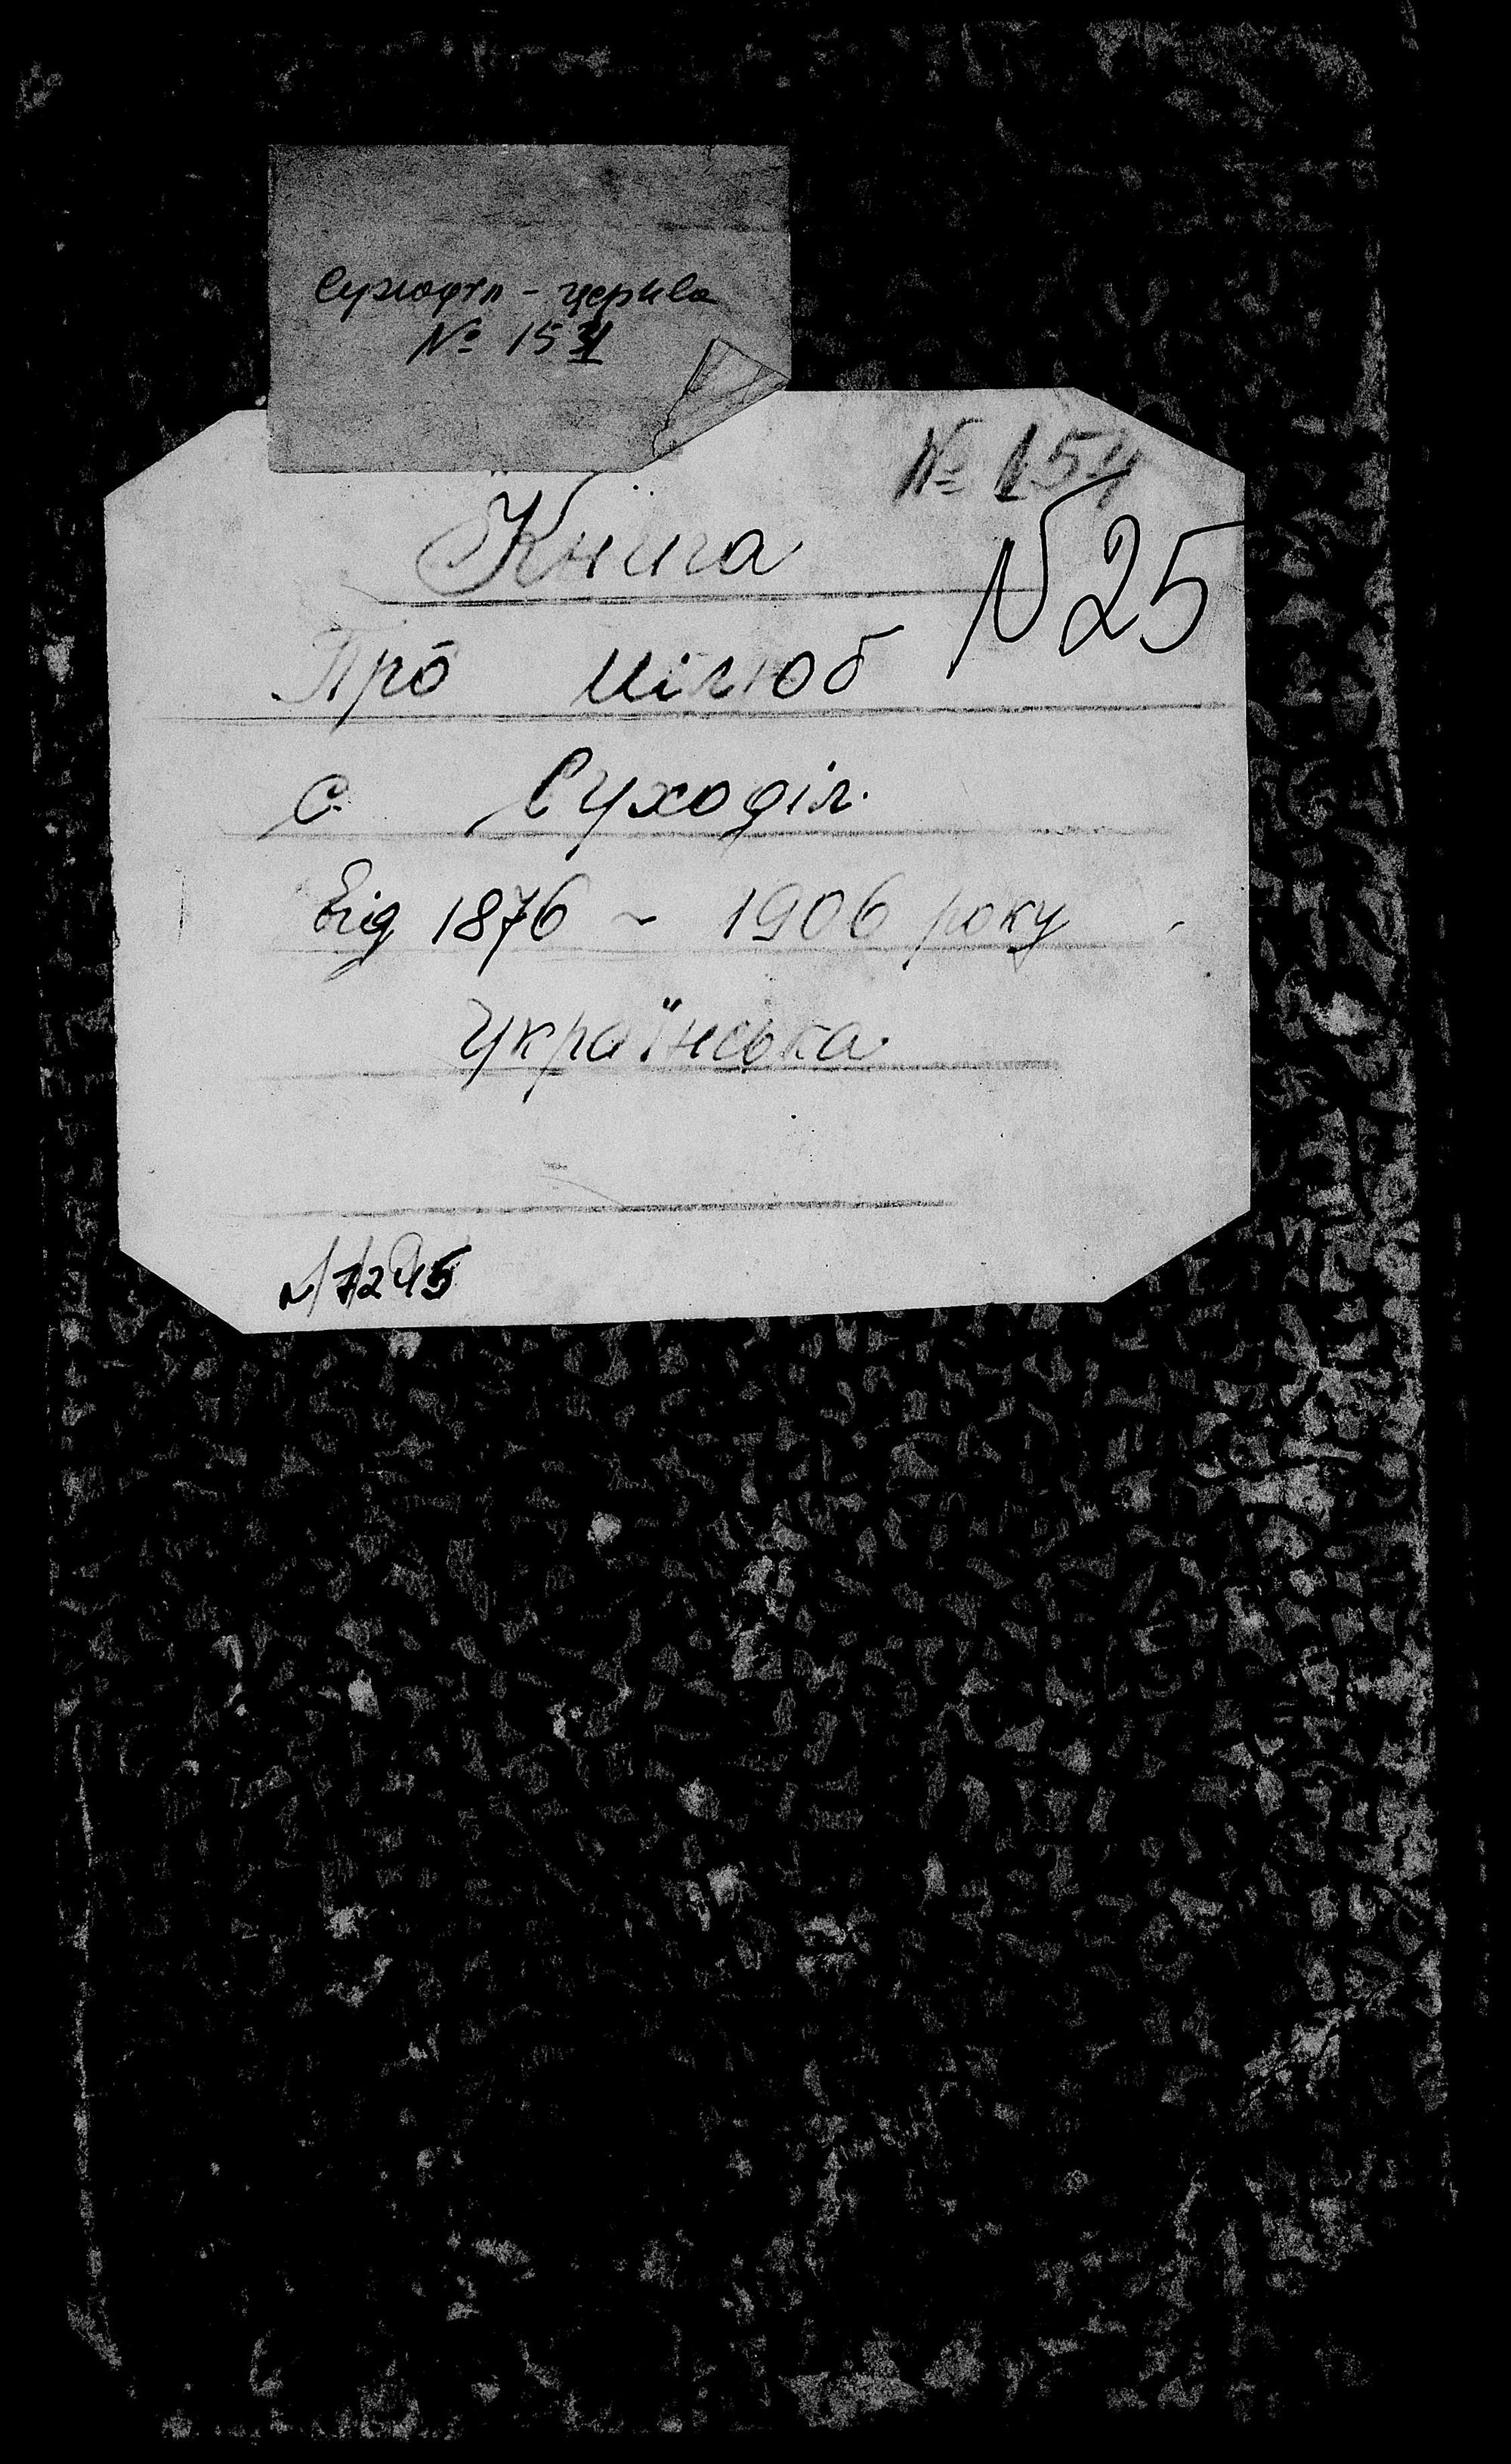 Суходіл - церква
№ 154
№ 154
Книга
N 25
Про шлюб
с. Суходіл.
Від 1876 ~ 1906 року
Українська.
N 7245